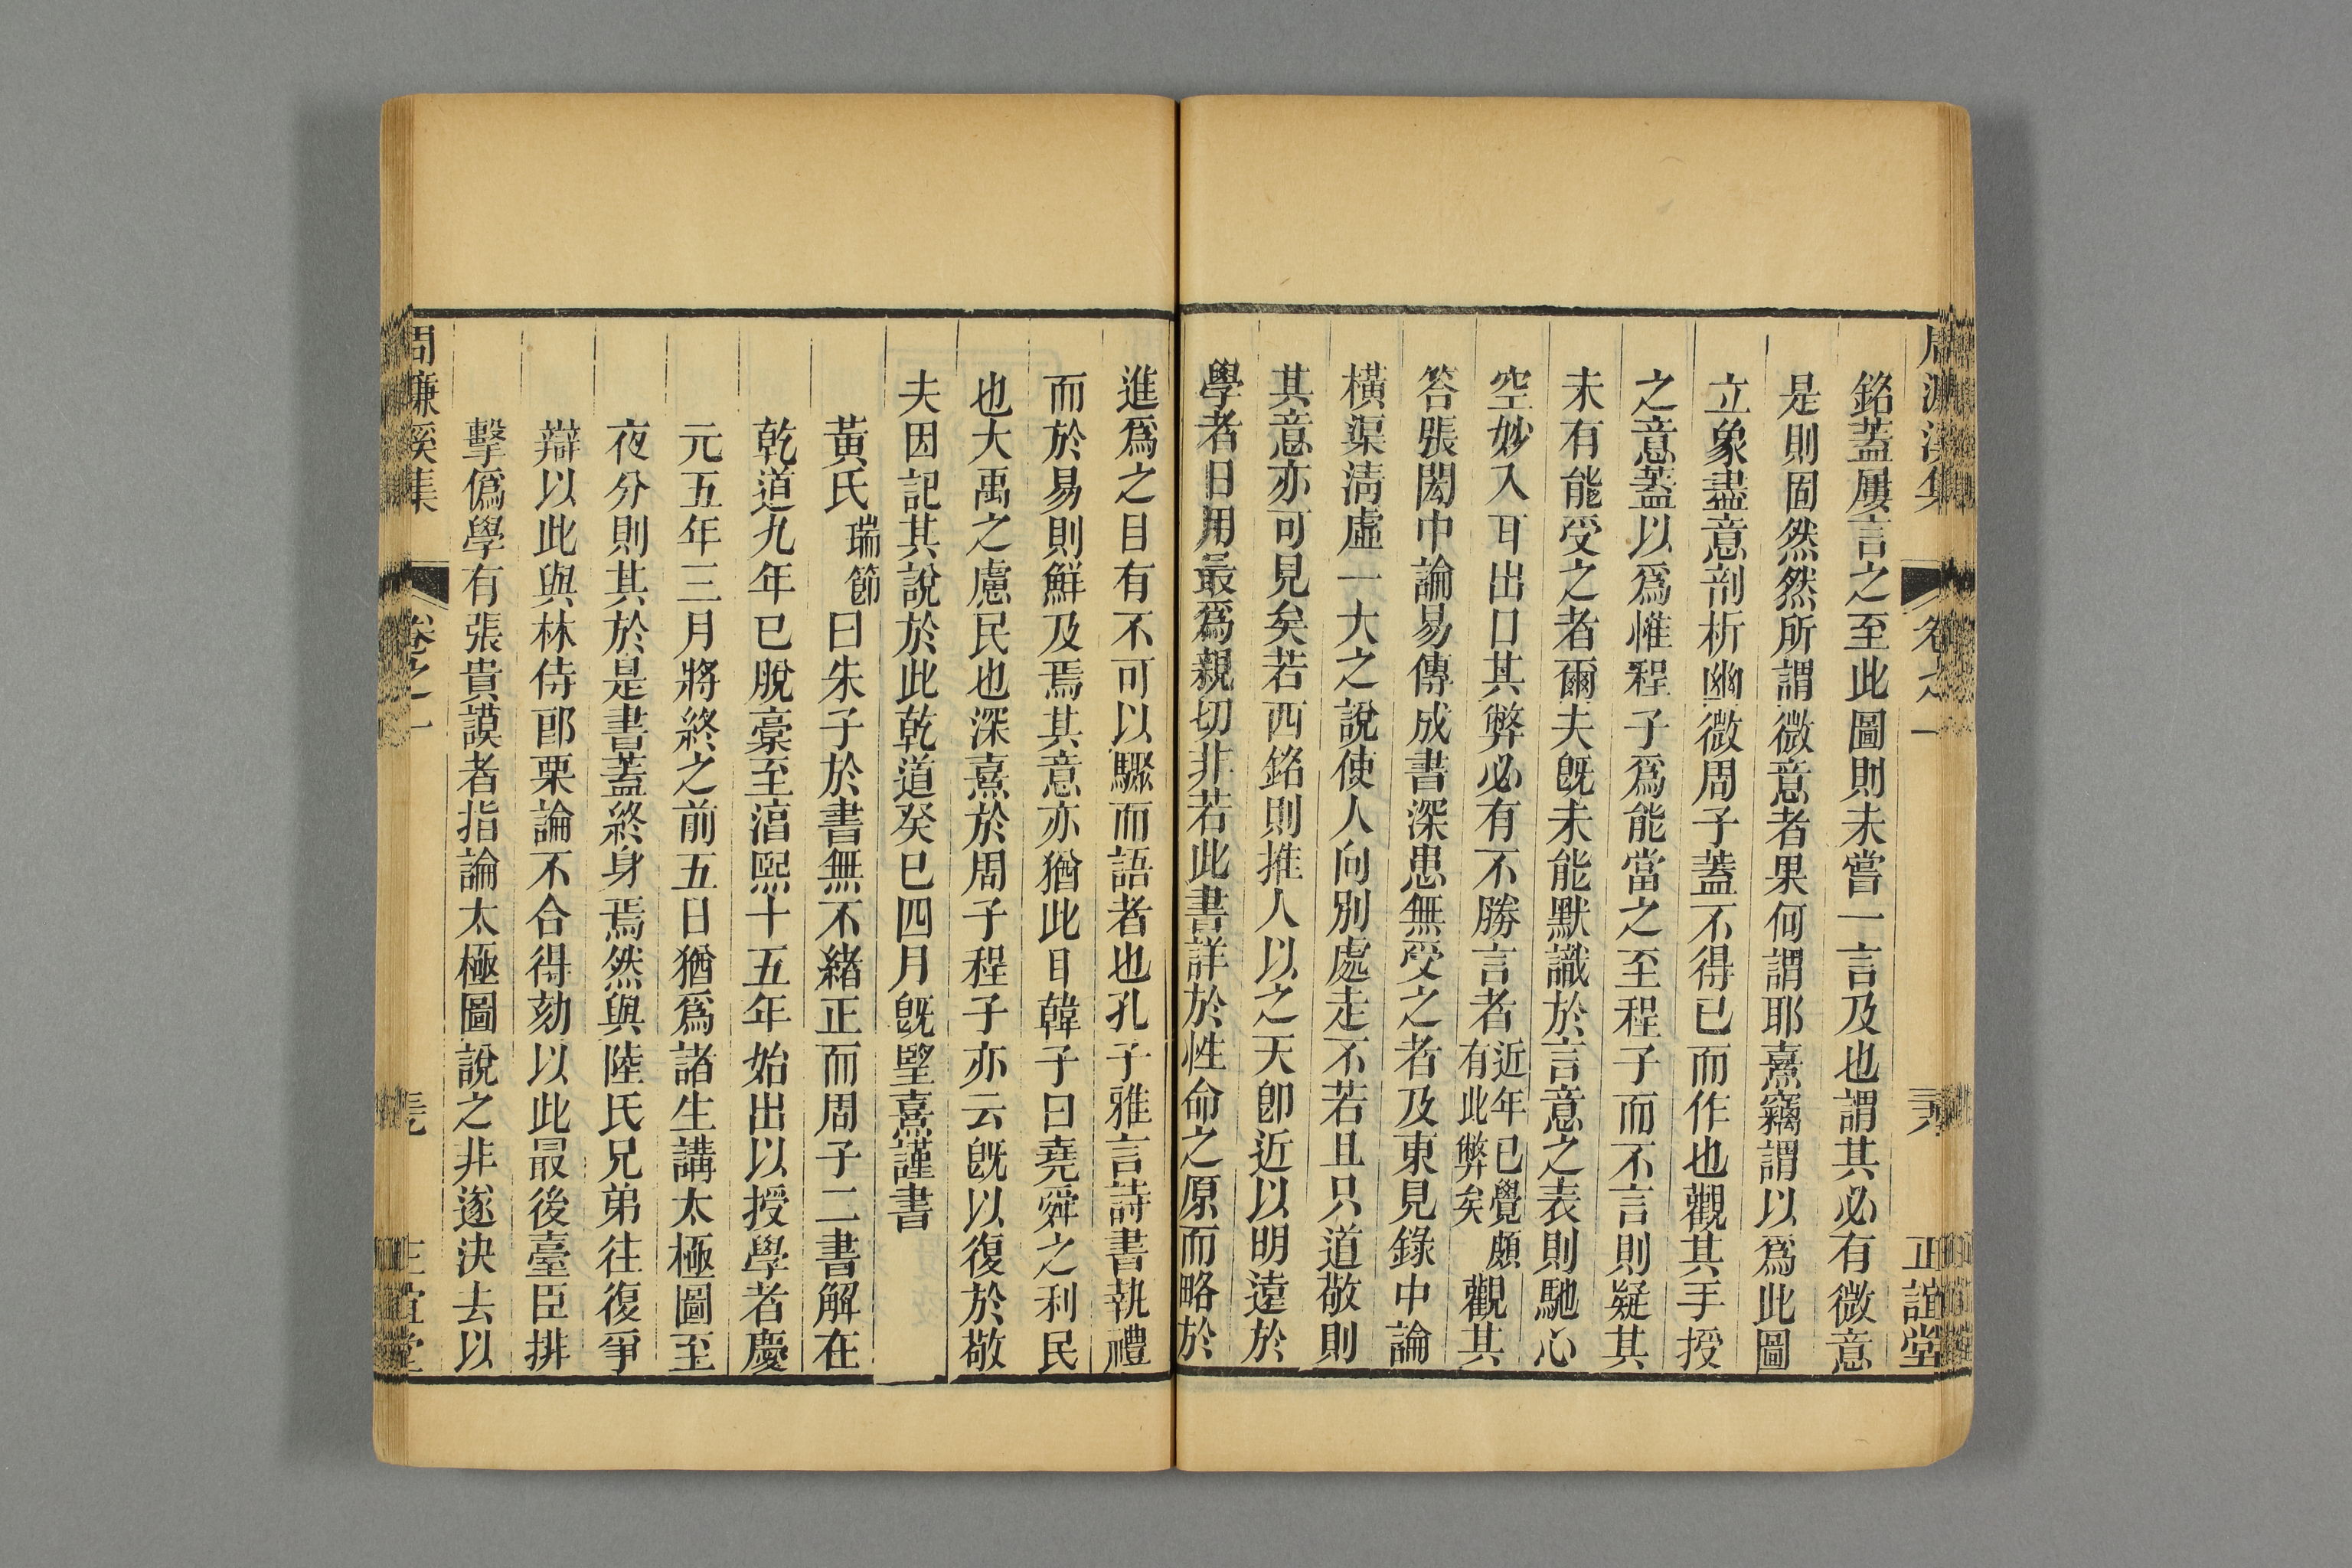 銘蓋屢言之至此圖則未嘗一言及也謂其必有微意
是則固然然所謂微意者果何謂耶熹竊謂以爲此圖
立象盡意剖析幽微周子蓋不得已而作也觀其手授
之意蓋以爲惟程子爲能當之至程子而不言則疑其
未有能受之者爾夫旣未能默識於言意之表則馳心
空妙入耳出口其弊必有不勝言者近年已覺頗有此弊矣觀其
答張閎中論易傳成書深患無受之者及東見錄中論
橫渠淸虛一大之說使人向別處走不若且只道敬則
其意亦可見矣若西銘則推人以之天卽近以明遠於
學者日用最爲親切非若此書詳於性命之原而略於
進爲之目有不可以驟而語者也孔子雅言詩書執禮
而於易則鮮及焉其意亦猶此耳韓子曰堯舜之利民
也大禹之慮民也深熹於周子程子亦云旣以復於敬
夫因記其說於此乾道癸巳四月旣朢熹謹書
黃氏瑞節曰朱子於書無不緒正而周子二書解在
乾道九年已脫稾至湻熙十五年始出以授學者慶
元五年三月將終之前五日猶爲諸生講太極圖至
夜分則其於是書蓋終身焉然與陸氏兄弟往復爭
辯以此與林侍郎栗論不合得劾以此最後臺臣排
擊僞學有張貴謨者指論太極圖說之非遂決去以
周濂溪集
卷之一
正誼堂